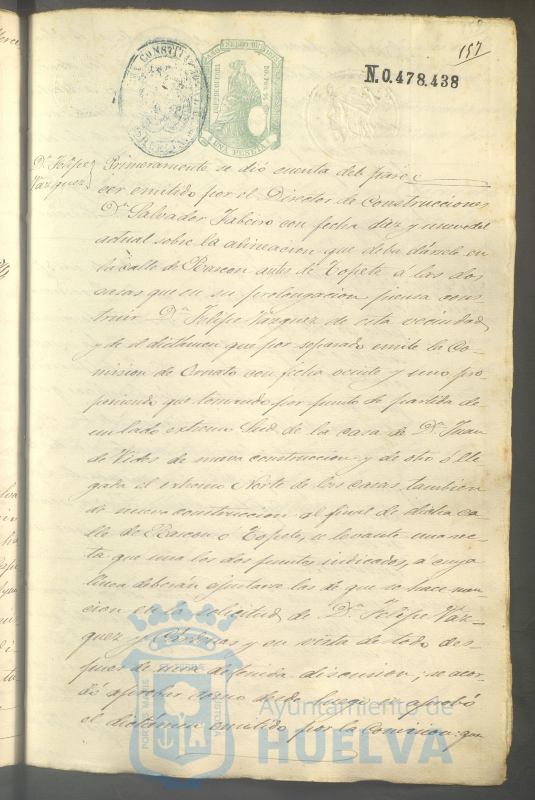 157
N. 0.478.438
UNA PESETA
Dn. Felipe
Vazquez
Primeramente se dió cuenta del pare
cer emitido por el Director de Construcciones
Dn. Salvador con fecha diez y nueve del
actual sobre la alineacion que deba dársele en
la calle de Rascon antes de Topete á las dos
casas que en su prolongacion piensa cons
truir Dn. Felipe Vazquez de esta vecindad,
y de el dictámen que por separado emite la Co-
mision de Ornato con fecha veinte y uno pro-
poniendo que tomando por punto de partida de
un lado extremo Sud de la casa de Dn. Juan
de Vides de nueva construccion y de otro ó lle
gada el extremo Norte de las casas tambien
de nueva construccion al final de dicha ca-
lle de Rascon ó Topete, se levante una rec-
ta que una los dos puntos indicados, á cuya
línea deberán ajustarse las de que se hace men
cion en la solicitud de Dn. Felipe Váz-
quez y Cárdenas y en vista de todo des-
pues de una detenida discusion; se acor-
dó aprobar como desde luego se aprobó
el dictámen emitido por la Comision: que
Ayuntamiento de
HUELVA